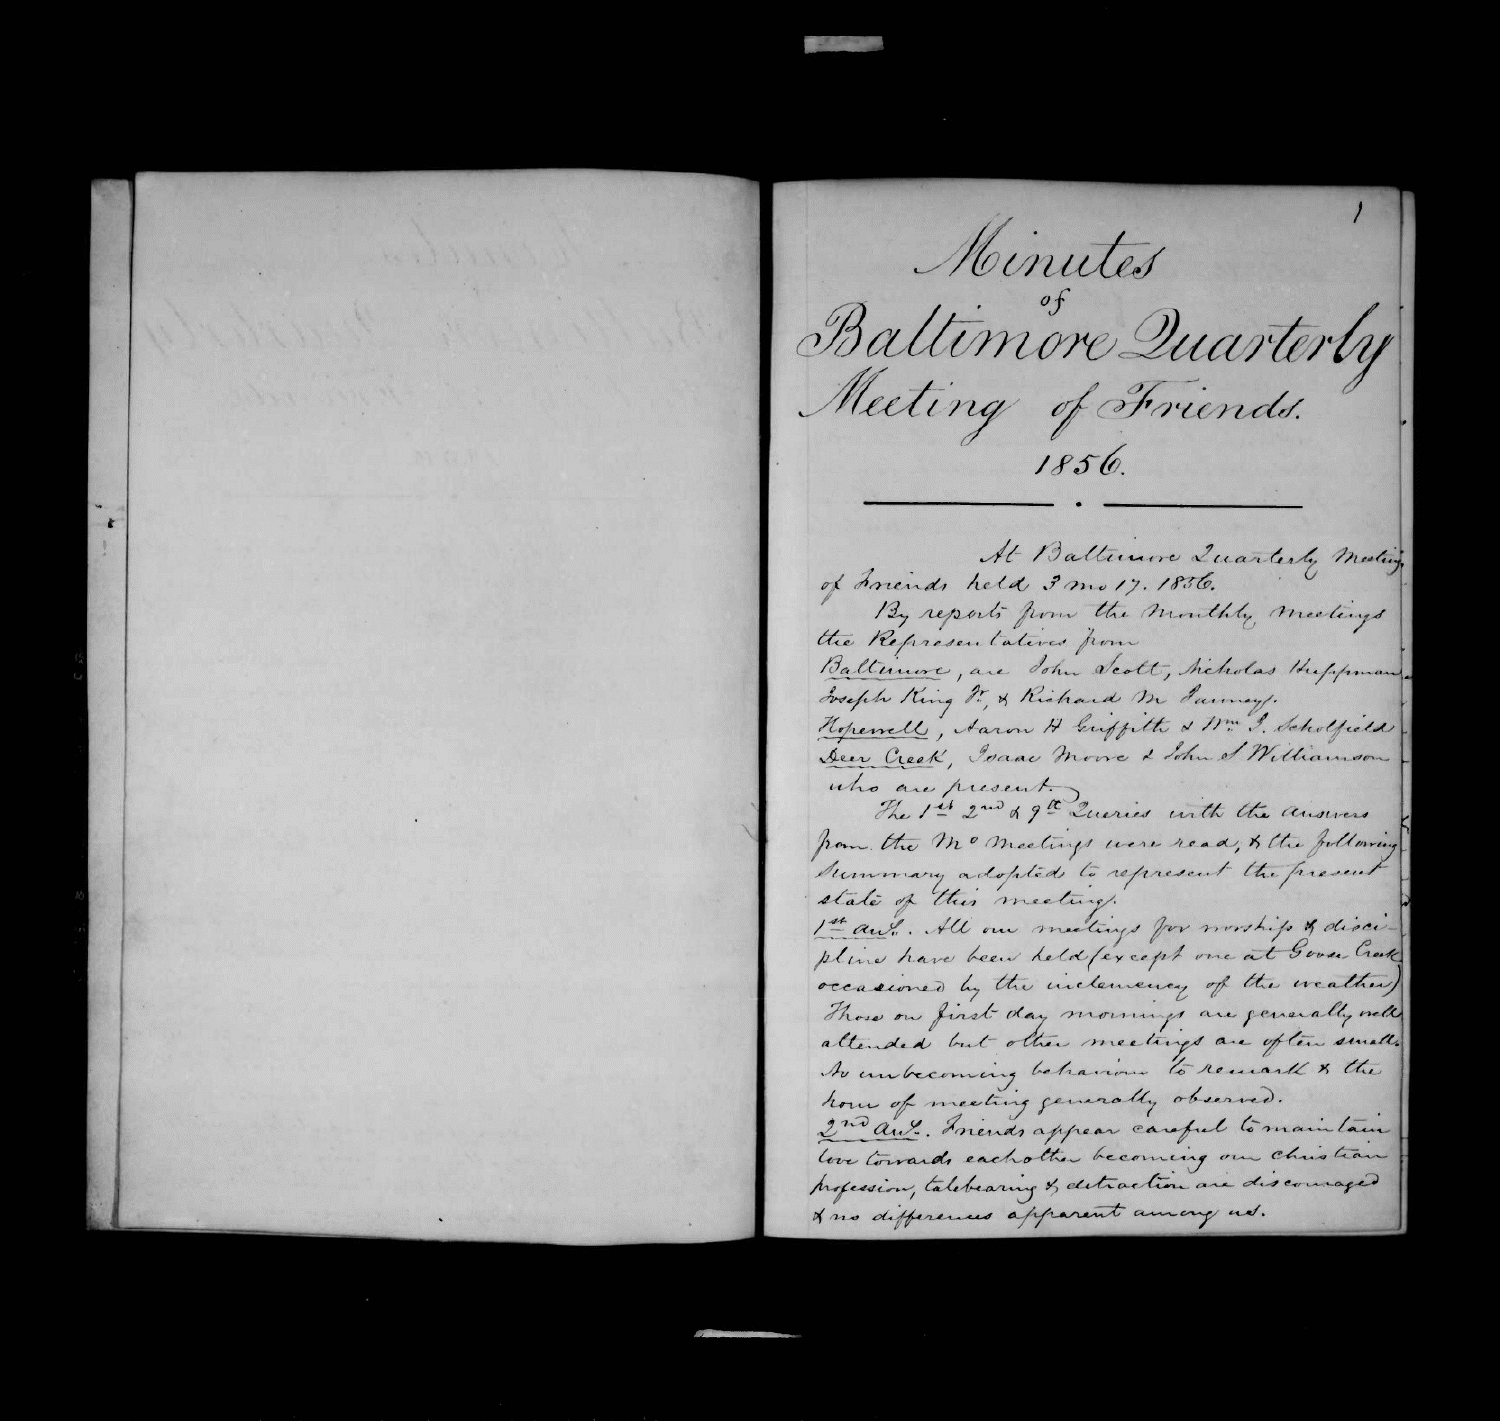 1
Minutes
of
Baltimore Quarterly
Meeting of Friends.
1856.
At Baltimore Quarterly Meeting
of Friends held 3 mo 17. 1856.
By reports from the Monthly Meetings
the Representatives from
Baltimore, are John Scott, Nicholas Huppman
Joseph King Jr., & Richard M Janney.
Hopewell, Aaron H Griffith & Wm. J. Scholfield
Deer Creek, Isaac Moore & John S Williamson
who are present.
The 1st 2nd & 9th Queries with the answers
from the Mo Meetings were read, & the following
Summary adopted to represent the present
state of this meeting.
1st Ans. All our meetings for worship & disci-
pline have been held (except one at Goose Creek
occasioned by the inclemency of the weather)
Those on first day mornings are generally well
attended but other meetings are often small.
No unbecoming behaviour to remark & the
hour of meeting generally observed.
2nd Ans. Friends appear careful to maintain
love towards eachother becoming our christian
profession, talebearing & detraction are discouraged
& no differences apparent among us.